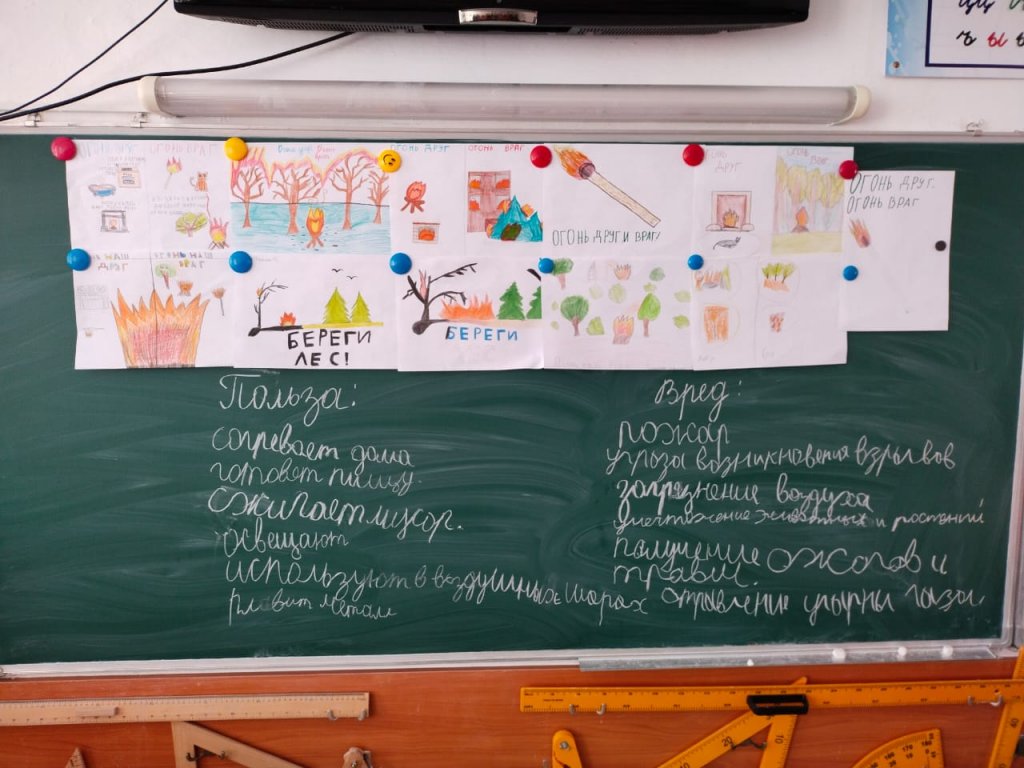 ОГОНЬ ДРУГ
ОГОНЬ ВРАГ
ОГОНЬ ДРУГ
ОГОНЬ ВРАГ
ОГОНЬ ДРУГ И ВРАГ!
ОГОНЬ
ДРУГ
ОГОНЬ
ВРАГ
ОГОНЬ ДРУГ.
ОГОНЬ ВРАГ
НАШ
ДРУГ
ОГОНЬ НАШ
ВРАГ
БЕРЕГИ
ЛЕС!
БЕРЕГИ
Польза:
согревает дома
готовят пищу.
Сжигает мусор.
Освещают
используют в воздушных шарах
плавит метал
Вред:
пожар
угроза возникновения взрывов
загрязнение воздуха
уничтожение животных и растений
получение ожогов и
травм.
отравление угарны газом
ъ ы
20
10
40